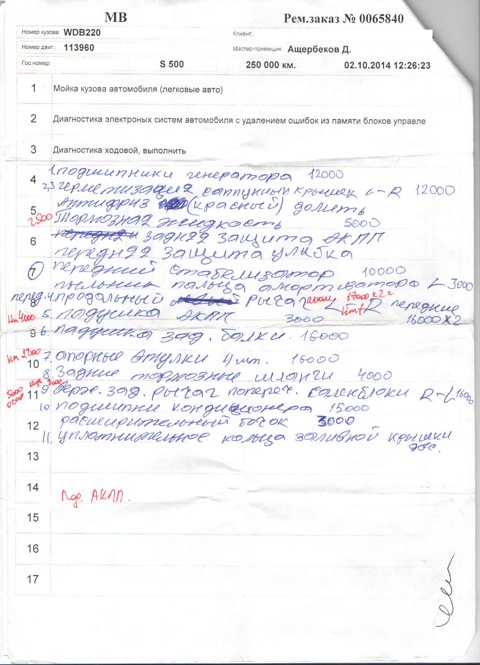 МВ Рем.заказ № 0065840
Номер кузова: WDB220 Клиент:
Номер двиг.: 113960 Мастер-приемщик: Ащербеков Д.
Гос.номер: S 500 250 000 км. 02.10.2014 12:26:23
1 Мойка кузова автомобиля (легковые авто)
2 Диагностика электроных систем автомобиля с удалением ошибок из памяти блоков управле
3 Диагностика ходовой, выполнить
4 1. подшипники генератора 12000
2,3 герметизация клапунных крышек L-R 12000
5 Антифриз (красный) долить
2500 Тормозная жидкость 5000
6 задняя защита АКПП
передняя защита улыбка
7 передний стабелизатор 10000
пыльник пальца амортизатора L 3000
8 перед. 4. продальный рычаг L R передние
5. подушка АКПП 3000 16000 x 2
9 6. падушка зад. балки. 16000
10 7. опорные втулки 4 шт. 16000
8. Задние тормозные шланги 4000
11 9. зад. рычаг попереч. саленблоки R-L 16000
10 подшипние кондиционера 15000
12 расширительный бочок 3000
11. уплотнительное кольца заливной крышки
13
14
АКПП.
15
16
17